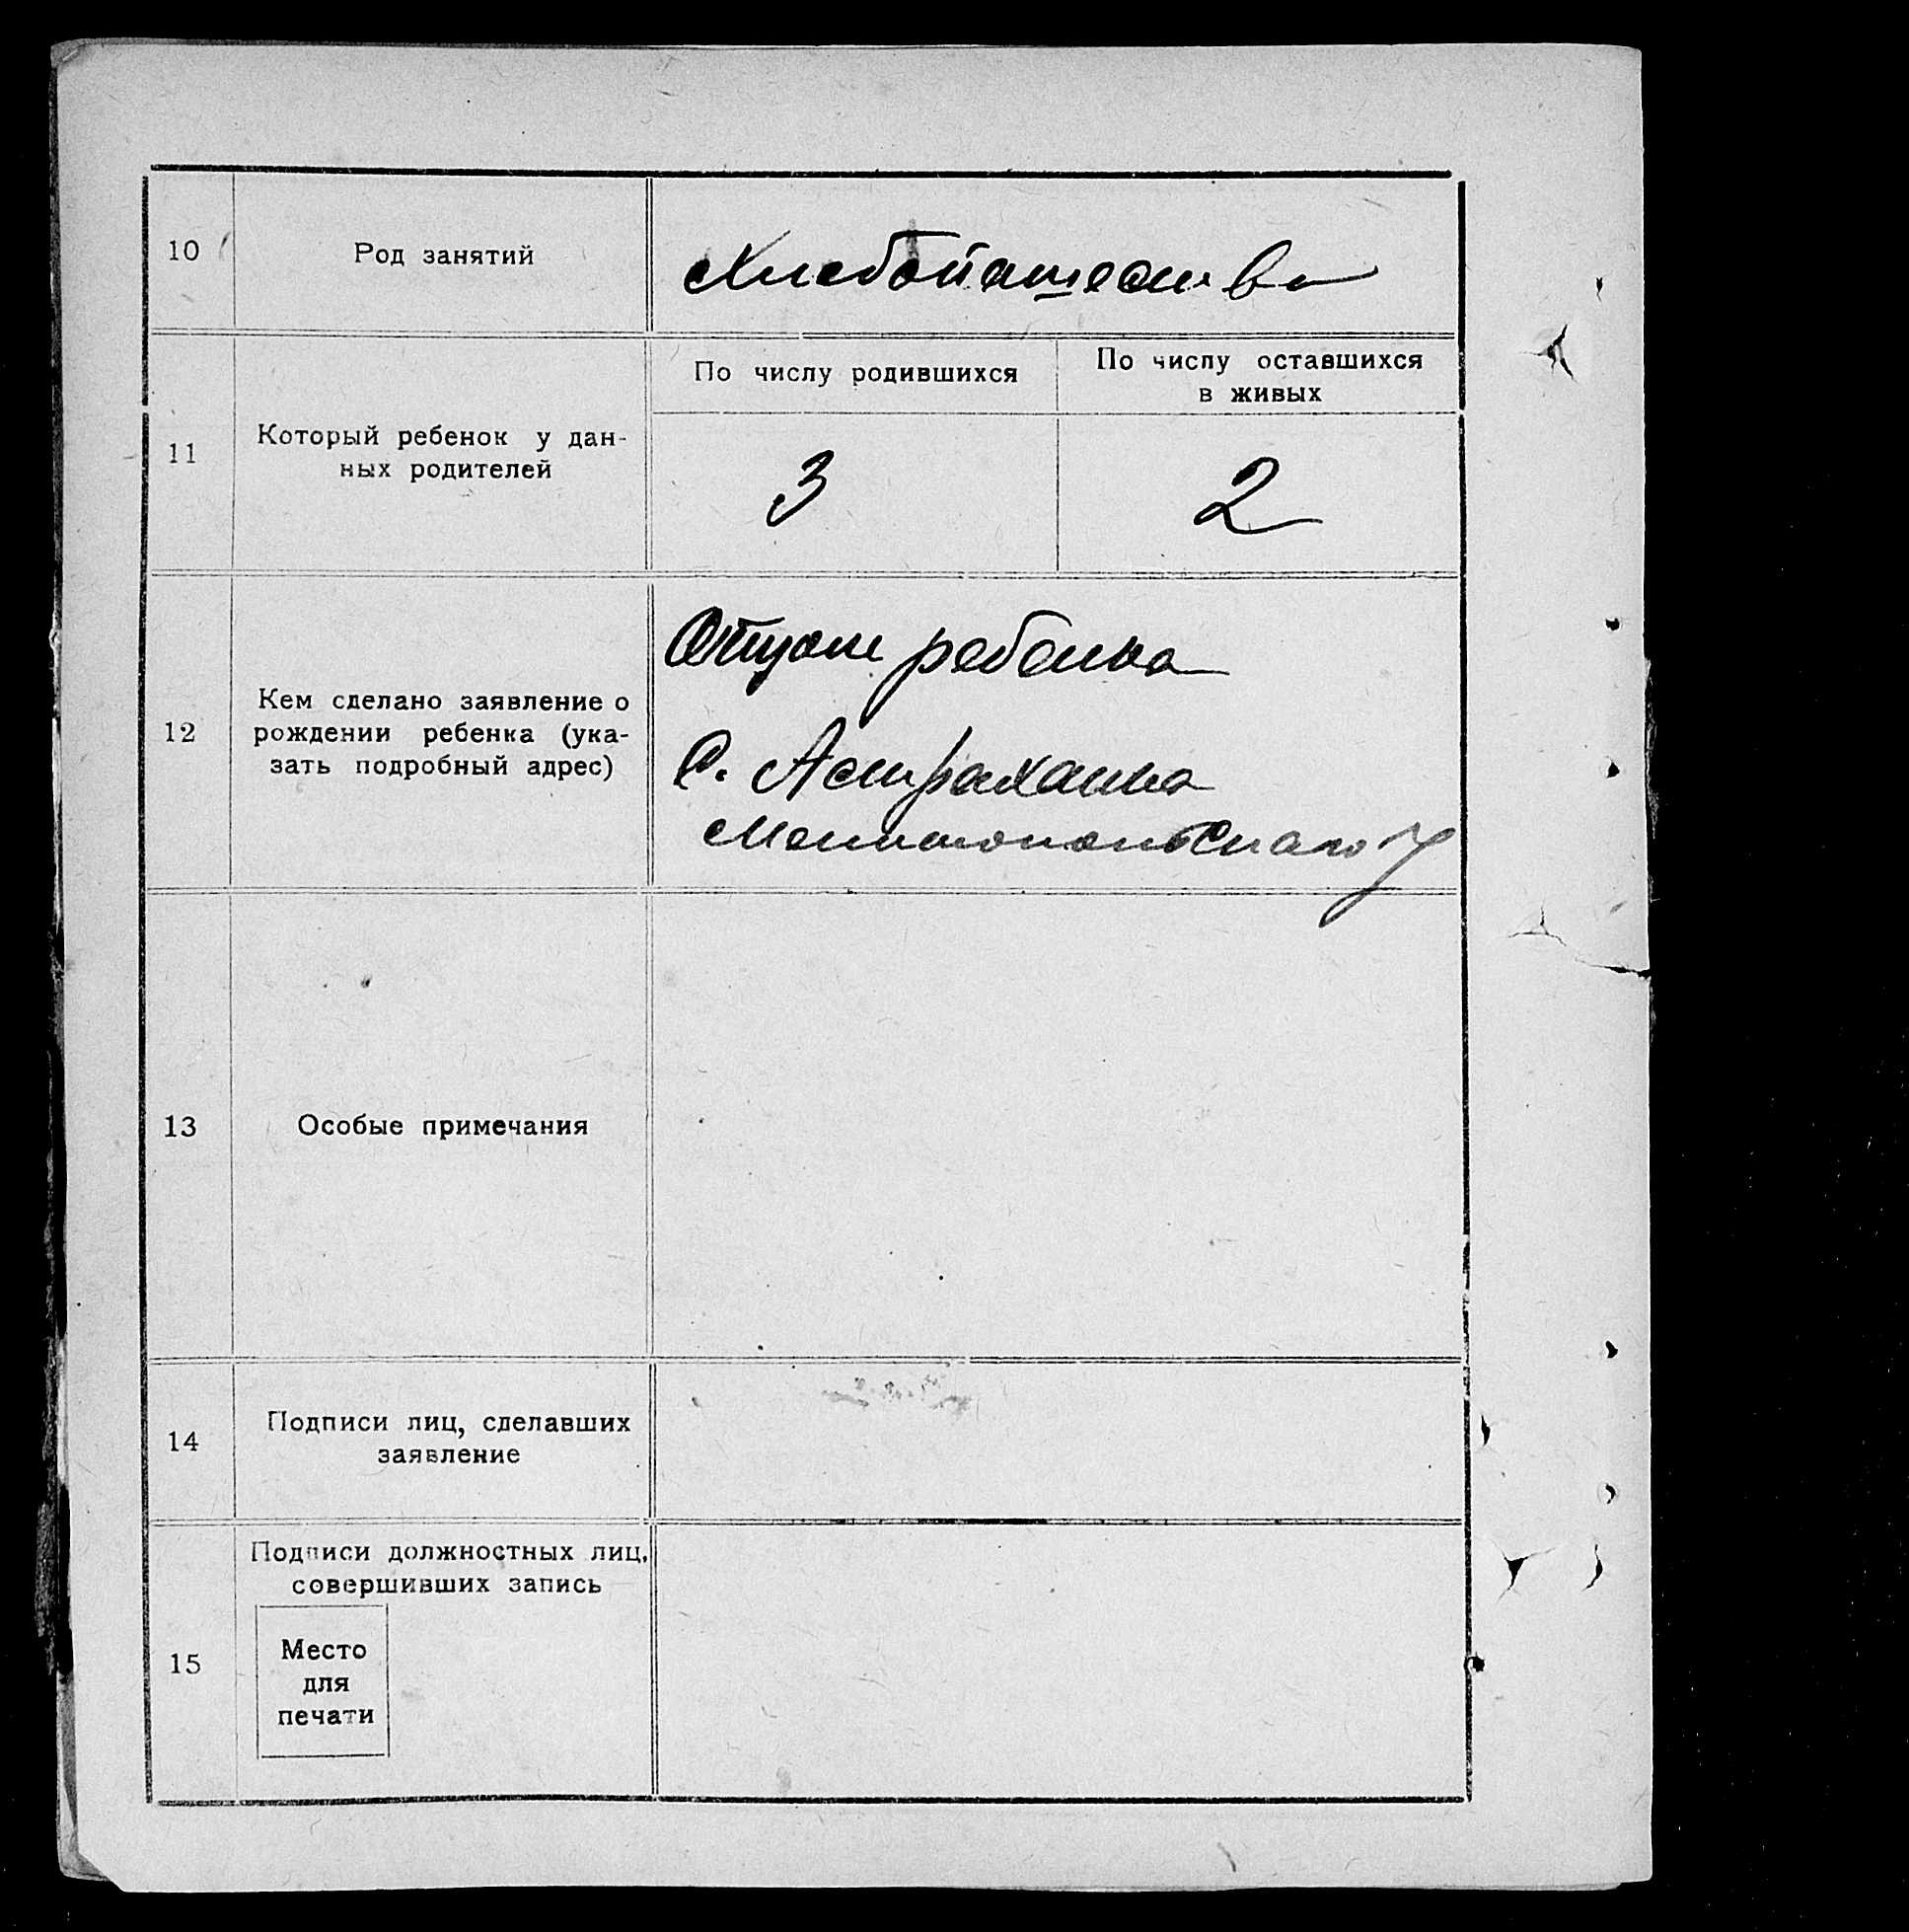 10
Род занятий
Хлебопашество
11
Который ребенок у дан-
ных родителей
По числу родившихся
По числу оставшихся
в живых
3
2
12
Кем сделано заявление о
рождении ребенка (ука-
зать подробный адрес)
Отцом ребенка
С. Астраханка
Мелитопольскаго у
13
Особые примечания
14
Подписи лиц, сделавших
заявление
15
Подписи должностных лиц,
совершивших запись
Место
для
печати